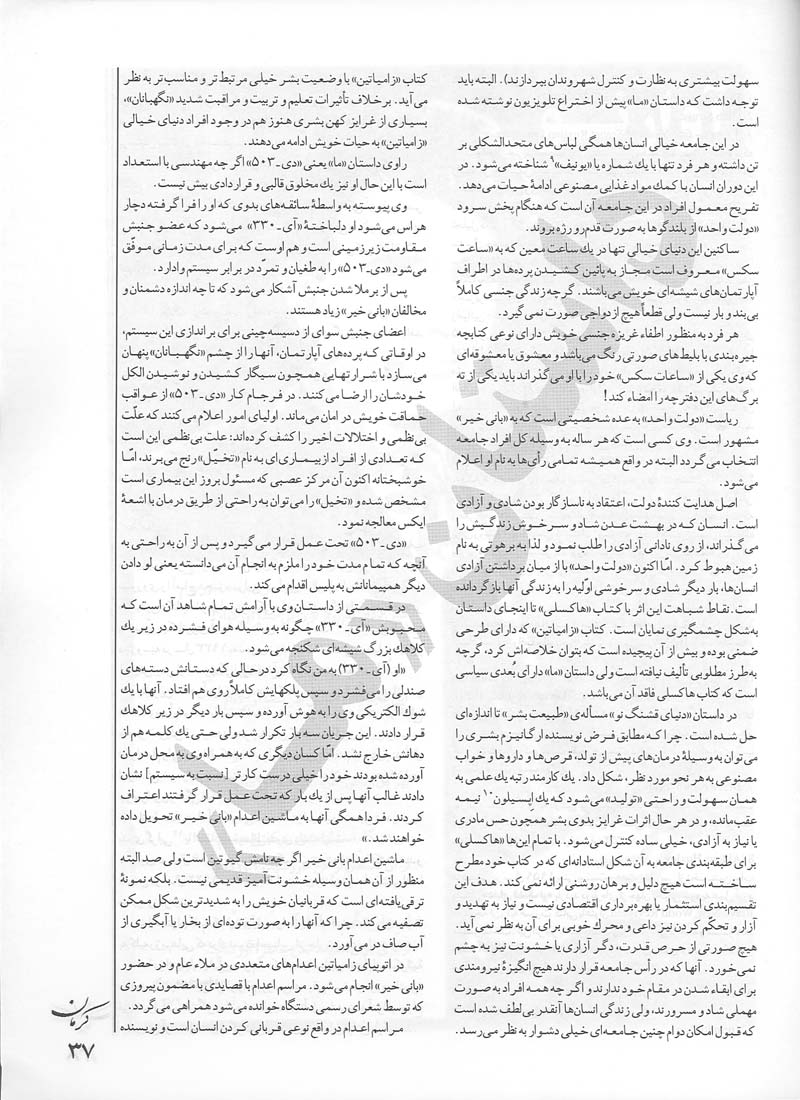 سهولت بیشتری به نظارت و کنترل شهروندان بپردازند). البته باید
توجه داشت که داستان «ما» پیش از اختراع تلویزیون نوشته شده
است.
در این جامعه خیالی انسان‌ها همگی لباس‌های متحدالشکلی بر
تن داشته و هر فرد تنها با یك شماره یا «یونیف»۹ شناخته می‌شود. در
این دوران انسان با کمك مواد غذایی مصنوعی ادامهٔ حیات می‌دهد.
تفریح معمول افراد در این جامعه آن است که هنگام پخش سرود
«دولت واحد» از بلندگوها به صورت قدم‌رو رژه بروند.
ساکنین این دنیای خیالی تنها در یك ساعت معین که به «ساعت
سکس» معروف است مجاز به پائین کشیدن پرده‌ها در اطراف
آپارتمان‌های شیشه‌ای خویش می‌باشند. گرچه زندگی جنسی کاملاً
بی‌بند و بار نیست ولی قطعاً هیچ ازدواجی صورت نمی‌گیرد.
هر فرد به منظور اطفاء غریزه جنسی خویش دارای نوعی کتابچه
جیره‌بندی با بلیط‌های صورتی رنگ می‌باشد و معشوق یا معشوقه‌ای
که وی یکی از «ساعات سکس» خود را با او می‌گذراند باید یکی از ته
برگ‌های این دفترچه را امضاء کند!
ریاست «دولت واحد» به عده شخصیتی است که به «بانی خیر»
مشهور است. وی کسی است که هر ساله به وسیله کل افراد جامعه
انتخاب می‌گردد البته در واقع همیشه تمامی رأی‌ها به نام او اعلام
می‌شود.
اصل هدایت کنندهٔ دولت، اعتقاد به ناسازگار بودن شادی و آزادی
است. انسان که در بهشت عدن شاد و سرخوش زندگیش را
می‌گذراند، از روی نادانی آزادی را طلب نمود و لذا به برهوتی به نام
زمین هبوط کرد. امّا اکنون «دولت واحد» با از میان برداشتن آزادی
انسان‌ها، بار دیگر شادی و سرخوشی اوّلیه را به زندگی آنها بازگردانده
است. نقاط شباهت این اثر با کتاب «هاکسلی» تا اینجای داستان
به‌شکل چشمگیری نمایان است. کتاب «زامیاتین» که دارای طرحی
ضمنی بوده و بیش از آن پیچیده است که بتوان خلاصه‌اش کرد، گرچه
به‌طرز مطلوبی تألیف نیافته است ولی داستان «ما» دارای بُعدی سیاسی
است که کتاب هاکسلی فاقد آن می‌باشد.
در داستان «دنیای قشنگ نو» مسأله‌ی «طبیعت بشر» تا اندازه‌ای
حل شده است. چرا که مطابق فرض نویسنده ارگانیزم بشری را
می‌توان به وسیلهٔ درمان‌های پیش از تولد، قرص‌ها و داروها و خواب
مصنوعی به هر نحو مورد نظر، شکل داد. یك کارمند رتبه یك علمی به
همان سهولت و راحتی «تولید» می‌شود که یك اپسیلون۱۰ نیمه
عقب‌مانده، و در هر حال اثرات غرایز بدوی بشر همچون حس مادری
یا نیاز به آزادی، خیلی ساده کنترل می‌شود. با تمام این‌ها «هاکسلی»
برای طبقه‌بندی جامعه به آن شکل استادانه‌ای که در کتاب خود مطرح
ساخته است هیچ دلیل و برهان روشنی ارائه نمی‌کند. هدف این
تقسیم‌بندی استثمار یا بهره‌برداری اقتصادی نیست و نیاز به تهدید و
آزار و تحکّم کردن نیز داعی و محرك خوبی برای آن به نظر نمی‌آید.
هیچ صورتی از حرص قدرت، دگر آزاری یا خشونت نیز به چشم
نمی‌خورد. آنها که در رأس جامعه قرار دارند هیچ انگیزهٔ نیرومندی
برای ابقاء شدن در مقام خود ندارند و اگر چه همه افراد به صورت
مهملی شاد و مسرورند، ولی زندگی انسان‌ها آنقدر بی‌لطف شده است
که قبول امکان دوام چنین جامعه‌ای خیلی دشوار به نظر می‌رسد.
کتاب «زامیاتین» با وضعیت بشر خیلی مرتبط تر و مناسب‌تر به نظر
می‌آید. بر خلاف تأثیرات تعلیم و تربیت و مراقبت شدید «نگهبانان»،
بسیاری از غرایز کهن بشری هنوز هم در وجود افراد دنیای خیالی
«زامیاتین» به حیات خویش ادامه می‌دهند.
راوی داستان «ما» یعنی «دی-۵۰۳» اگر چه مهندسی با استعداد
است با این حال او نیز یك مخلوق قالبی و قراردادی بیش نیست.
وی پیوسته به واسطهٔ سائقه‌های بدوی که او را فرا گرفته دچار
هراس می‌شود او دلباختهٔ «آی-۳۳۰» می‌شود که عضو جنبش
مقاومت زیرزمینی است و هم اوست که برای مدت زمانی موفّق
می‌شود «دی-۵۰۳» را به طغیان و تمرّد در برابر سیستم وادارد.
پس از برملا شدن جنبش آشکار می‌شود که تا چه اندازه دشمنان و
مخالفان «بانی خیر» زیاد هستند.
اعضای جنبش سوای از دسیسه‌چینی برای براندازی این سیستم،
در اوقاتی که پرده‌های آپارتمان، آنها را از چشم «نگهبانان» پنهان
می‌سازد با شرارتهایی همچون سیگار کشیدن و نوشیدن الکل
خودشان را ارضا می‌کنند. در فرجام کار «دی-۵۰۳» از عواقب
حماقت خویش در امان می‌ماند. اولیای امور اعلام می‌کنند که علّت
بی‌نظمی و اختلالات اخیر را کشف کرده‌اند: علت بی‌نظمی این است
که تعدادی از افراد از بیماری‌ای به نام «تخیّل» رنج می‌برند، امّا
خوشبختانه اکنون آن مرکز عصبی که مسئول بروز این بیماری است
مشخص شده و «تخیل» را می‌توان به راحتی از طریق درمان با اشعهٔ
ایکس معالجه نمود.
«دی-۵۰۳» تحت عمل قرار می‌گیرد و پس از آن به راحتی به
آنچه که تمام مدت خود را ملزم به انجام آن می‌دانسته یعنی لو دادن
دیگر هم‌پیمانانش به پلیس اقدام می‌کند.
در قسمتی از داستان وی با آرامش تمام شاهد آن است که
محبوبش «آی-۳۳۰» چگونه به وسیله هوای فشرده در زیر یك
کلاهك بزرگ شیشه‌ای شکنجه می‌شود.
«او (آی-۳۳۰) به من نگاه کرد در حالی که دستانش دسته‌های
صندلی را می‌فشرد و سپس پلکهایش کاملاً روی هم افتاد. آنها با یك
شوك الکتریکی وی را به هوش آورده و سپس بار دیگر در زیر کلاهك
قرار دادند. این جریان سه بار تکرار شد ولی حتی یك کلمه هم از
دهانش خارج نشد. امّا کسان دیگری که به همراه وی به محل درمان
آورده شده بودند خود را خیلی درست کارتر [نسبت به سیستم] نشان
دادند غالب آنها پس از یك بار که تحت عمل قرار گرفتند اعتراف
کردند. فردا همگی آنها به ماشین اعدام «بانی خیر» تحویل داده
خواهند شد.»
ماشین اعدام بانی خیر اگر چه نامش گیوتین است ولی صد البته
منظور از آن همان وسیله خشونت آمیز قدیمی نیست. بلکه نمونهٔ
ترقی یافته‌ای است که قربانیان خویش را به شدیدترین شکل ممکن
تصفیه می‌کند. چرا که آنها را به صورت توده‌ای از بخار یا آبگیری از
آب صاف در می‌آورد.
در اتوپیای زامیاتین اعدام‌های متعددی در ملاء عام و در حضور
«بانی خیر» انجام می‌شود. مراسم اعدام با قصایدی با مضمون پیروزی
که توسط شعرای رسمی دستگاه خوانده می‌شود همراهی می‌گردد.
مراسم اعدام در واقع نوعی قربانی کردن انسان است و نویسنده
کرمان
۳۷